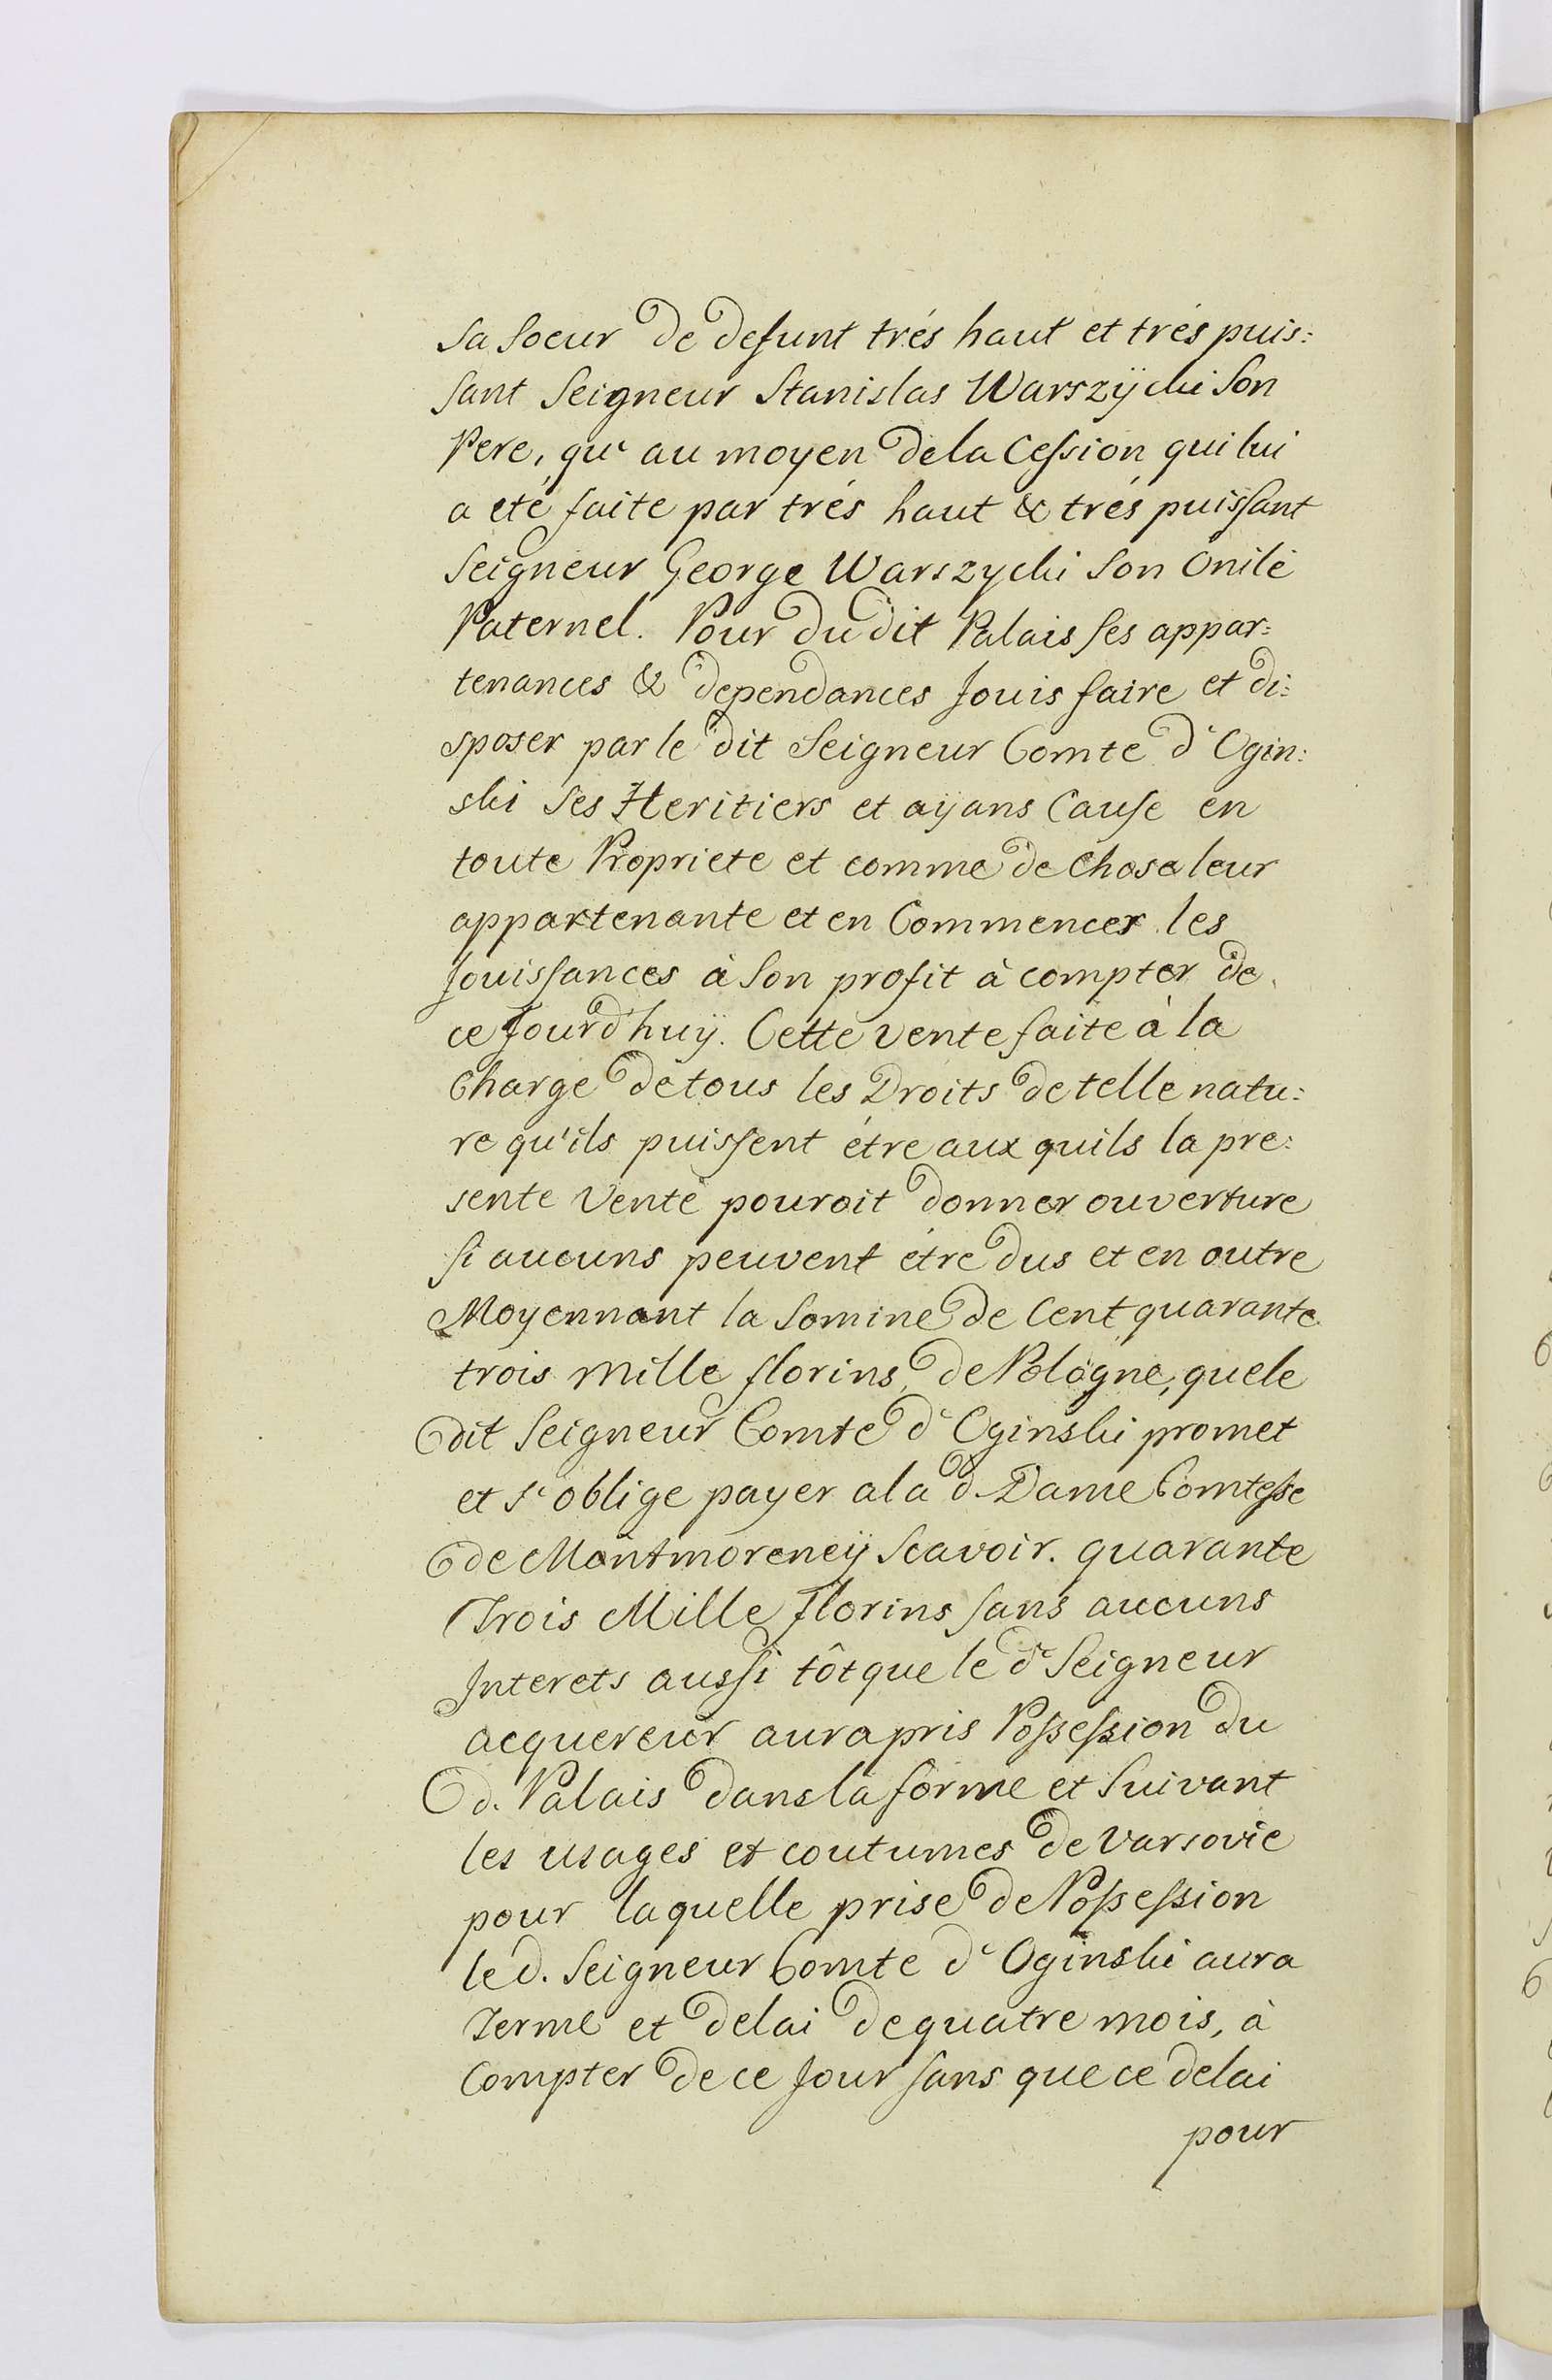 sa soeur de defunt trés haut et trés puis:
sant Seigneur Stanislas Warszÿcki son
Pere, qu' au moyen dela Cession qui lui
a eté faite par trés haut & trés puissant
Seigneur George Warszycki son Onclé
Paternel. Pour du dit Palais ses appar:
tenances & dependances Jouis faire et di:
sposer par le dit Seigneur Comte d'Ogin:
ski ses Heritiers et aÿans Cause en
toute Propriete et comme de Chose leur
appartenante et en Commencer les
Jouissances à son profit à compter de
ce Jourd'huÿ. Cette vente faite à la
Charge de tous les Droits de telle natu:
re qu'ils puissent étre aux quils la pre:
sente Vente pouroit donner ouverture
si aucuns peuvent étre dus et en outre
Moyennant la Somme de Cent quarante
trois mille florins de Pologne, que le
dit Seigneur Comte d'Oginski promet
et s'oblige payer a la d. Dame Comtesse
de Montmorencÿ Scavoir. quarante
Trois Mille Florins sans aucuns
Interets aussi tôt que le d' Seigneur
acquereur aura pris Possession du
d. Palais dans la forme et suivant
les usages et coutumes de Varsovie
pour laquelle prise de Possession
le d. Seigneur Comte d'Oginski aura
Terme et delai de quatre mois, à
Compter de ce Jour sans que ce delai
pour